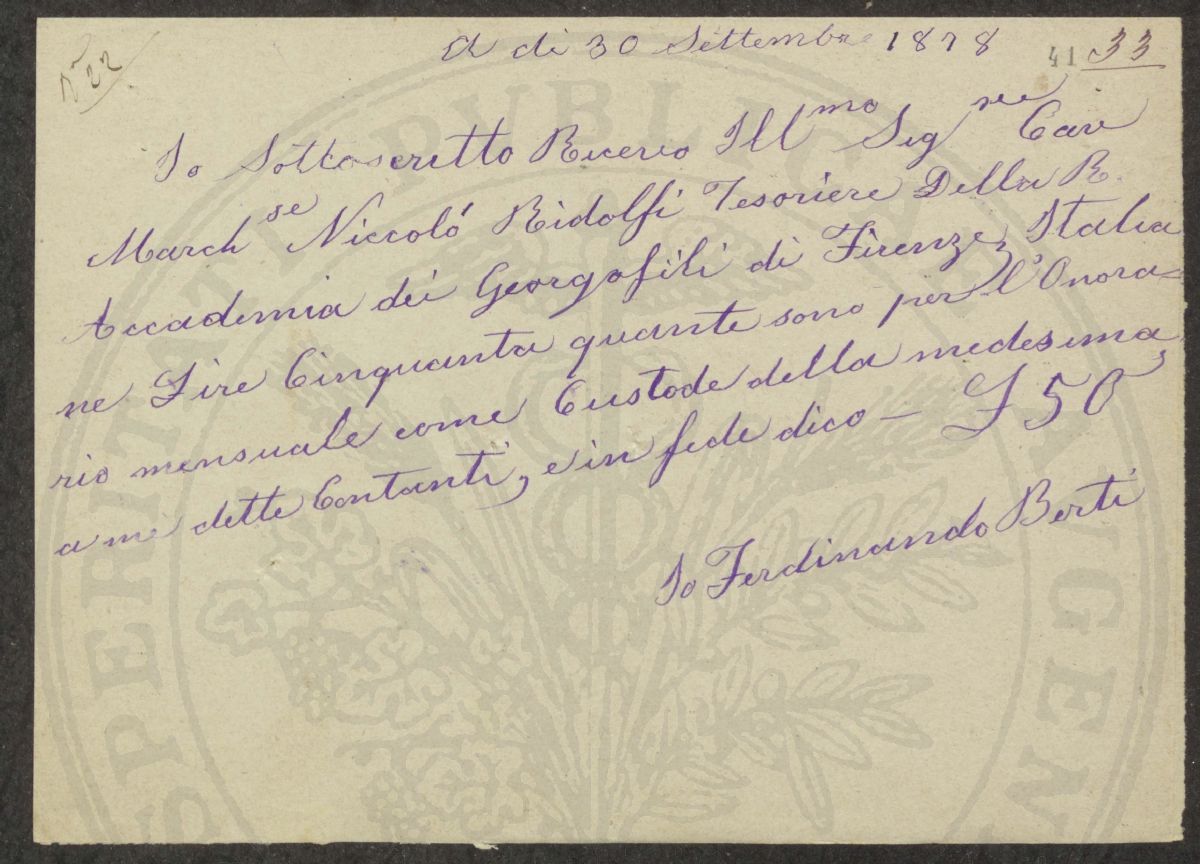 N° 22
A di 30 Settembre 1878
41 33
Io Sottoscritto Ricevo Ill^mo Sig^re Cav
March^se Niccoló Ridolfi Tesoriere Della R.
Accademia dei Georgofili di Firenze, Italia
ne Lire Cinquanta quante sono per l'Onora=
rio mensuale come Custode della medesima,
a me dette Contanti, e in fede dico — L 50
Io Ferdinando Berti
PROSPERITATI PVBLICAE AVGENDAE